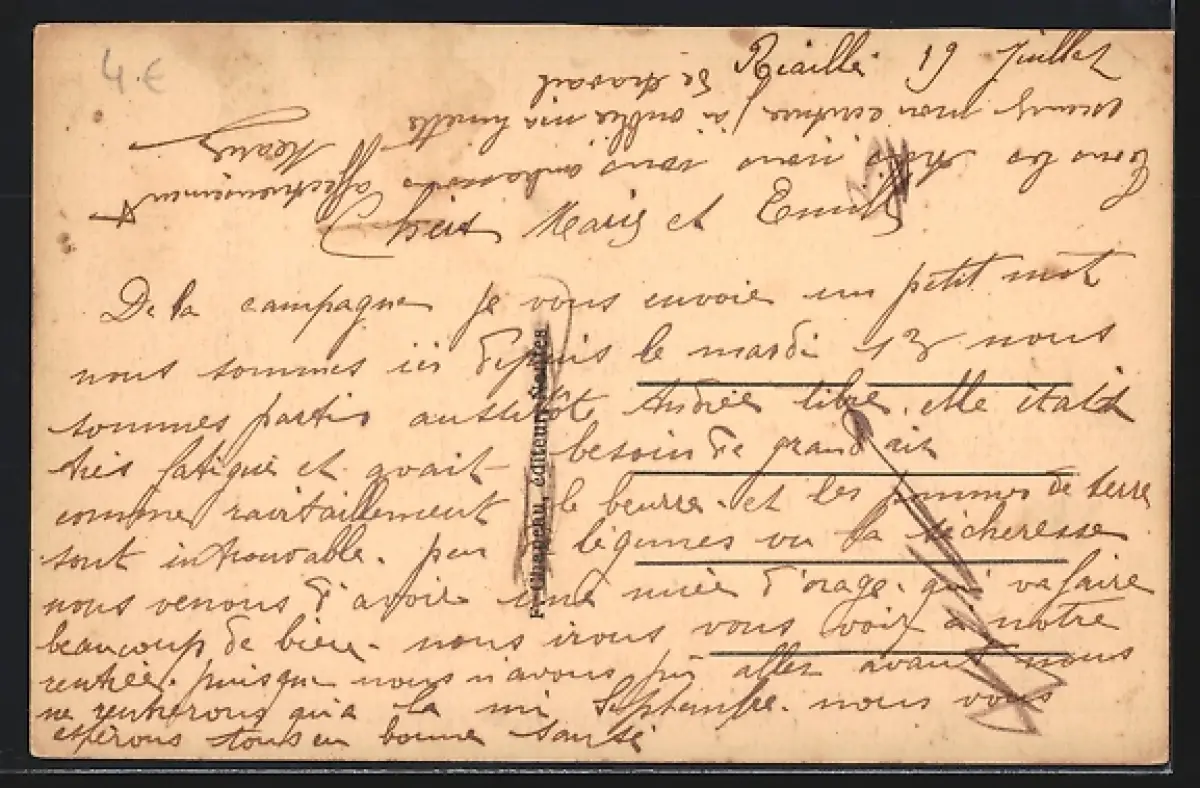 4.€
Riaillé 19 Juillet
Chers Marie et Emile
De la campagne je vous envoie un petit mot
nous sommes ici depuis le mardi 13 nous
sommes partis aussitôt Andrée libre. elle était
très fatigué et avait besoin de grand air
comme ravitaillement le beurre et les pommes de terre
sont introuvable. peu de légumes vu la sécheresse
nous venons d'avoir une nuée d'orage. qui va faire
beaucoup de bien. nous irons vous voir à notre
rentrée. puisque nous n'avons pu aller avant nous
ne rentrerons qu'a la mi Septembre. nous vous
espérons tous en bonne santé
Tous les trois nous vous embrassons affectueusement
mon ecriture j'ai oublié ma lunette
de travail
F. Chapeau, éditeur, Nantes